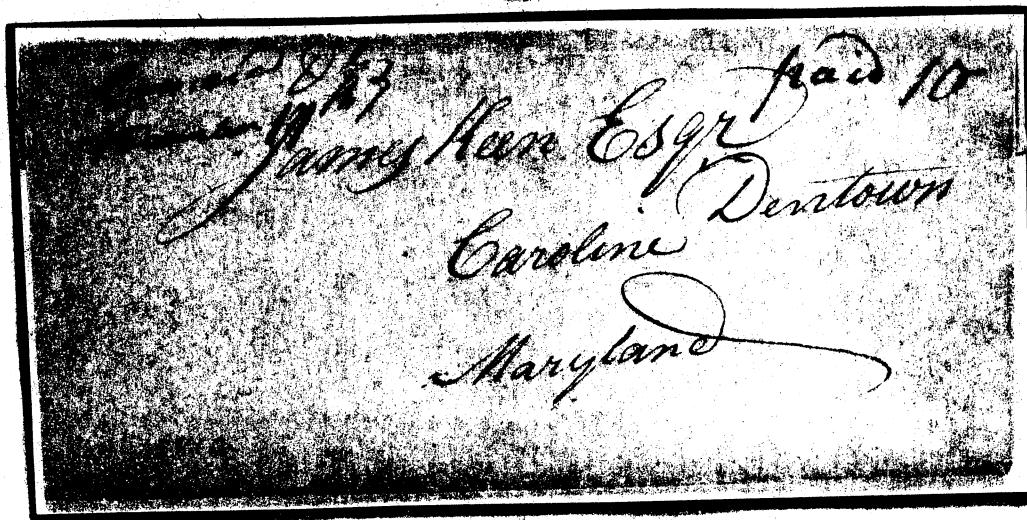 paid 10
James Keen Esqr
Dentown
Caroline
Maryland